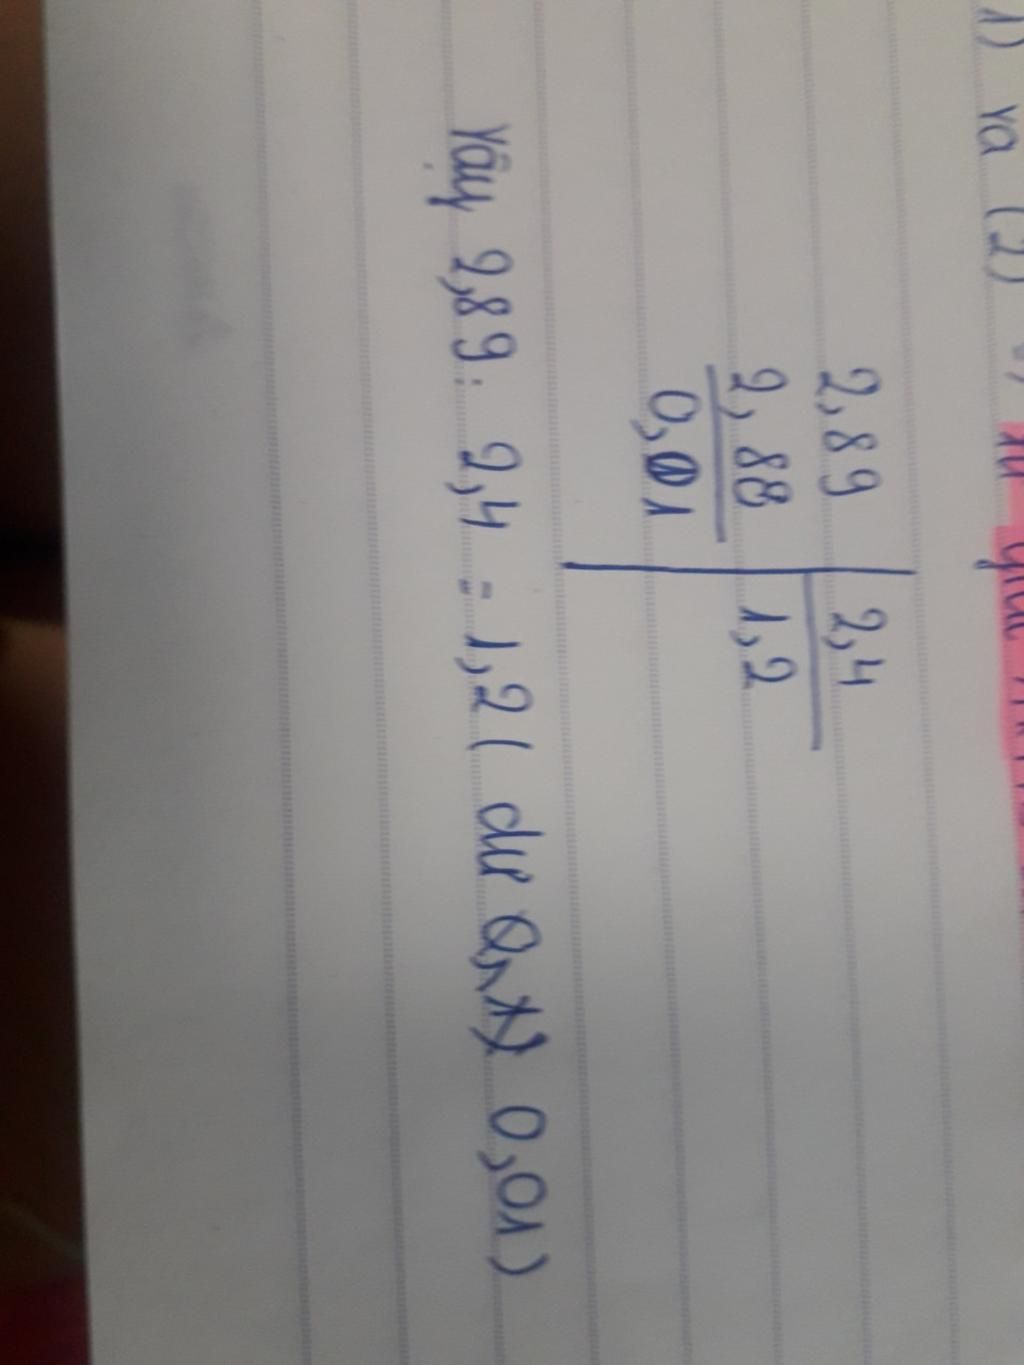 1) và (2)
2,89 2,4
2,88 1,2
0,01
Vậy 2,89 : 2,4 = 1,2 ( dư 0,01)